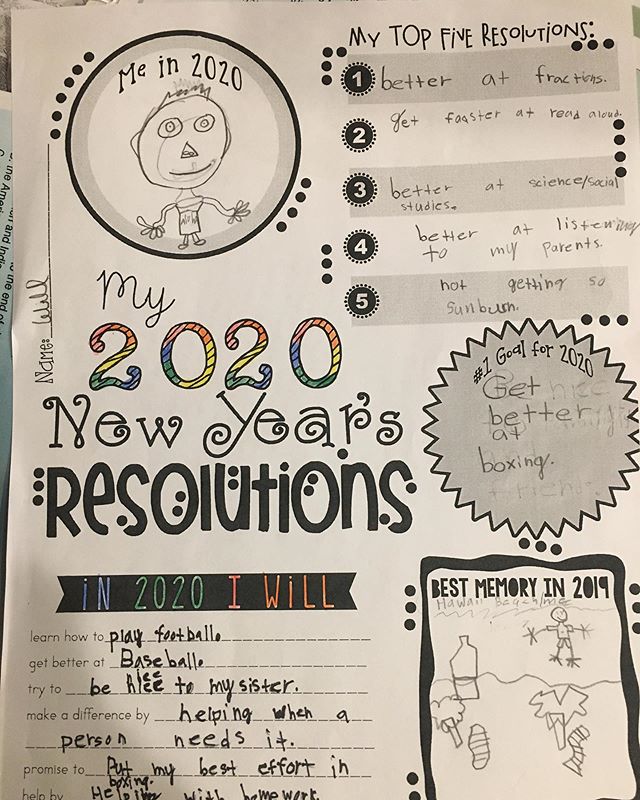 Me in 2020
Will
MY TOP FIVE RESOLUTIONS:
1 better at fractions.
2 get faaster at read aloud.
3 better at science/social
studies.
4 better at listening
to my parents.
5 not getting so
sunburn.
Name: Will
My
2020
New Year's
Resolutions
#1 Goal for 2020
Get
better
at
boxing.
IN 2020 I WILL
learn how to play football.
get better at Baseball.
try to be nice to my sister.
make a difference by helping when a
person needs it.
promise to Put my best effort in
boxing.
help by Helping with homework.
BEST MEMORY IN 2019
Hawaii Beach/me